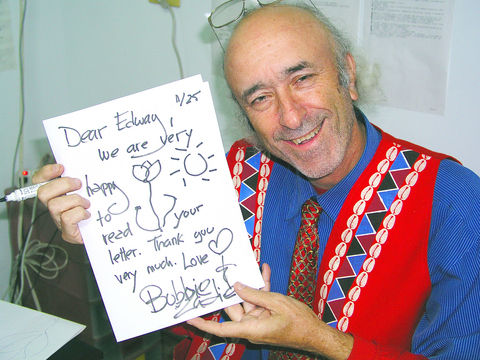 11/25
Dear Edway,
we are very
happy
to
read your
letter. Thank you
very much. Love
Bobbie